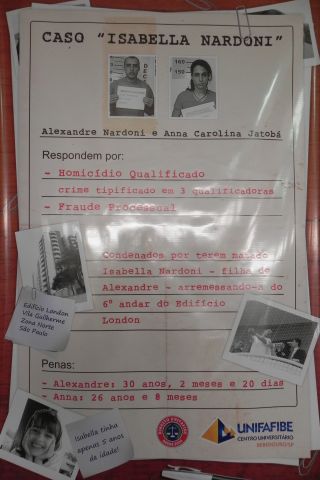 CASO "ISABELLA NARDONI"
Alexandre Nardoni e Anna Carolina Jatobá
Respondem por:
- Homicídio Qualificado
crime tipificado em 3 qualificadoras
- Fraude Processual
Condenados por terem matado
Isabella Nardoni - filha de
Alexandre - arremessando-a do
6º andar do Edifício
London
Edifício London
Vila Guilherme
Zona Norte
São Paulo
Penas:
- Alexandre: 30 anos, 2 meses e 20 dias
- Anna: 26 anos e 8 meses
Isabella tinha
apenas 5 anos
de idade!
UNIFAFIBE
CENTRO UNIVERSITÁRIO
BEBEDOURO/SP